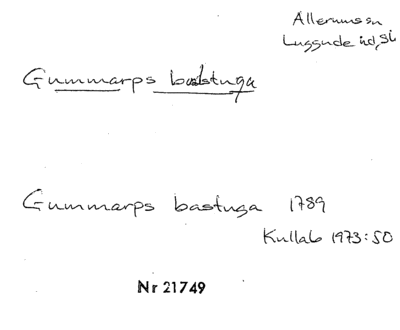 Allerums sn
Luggude hd, Sk
Gummarps bastuga
Gummarps bastuga 1789
Kullab 1973:50
Nr 21749